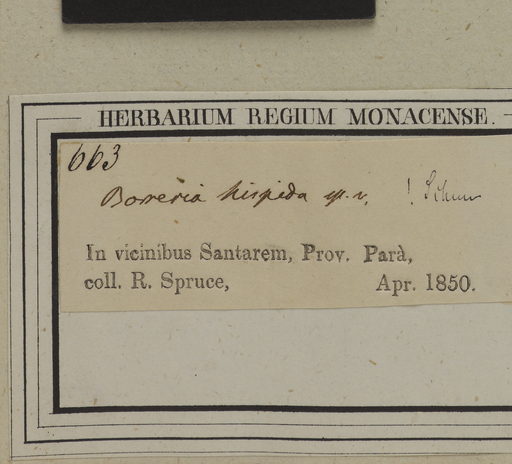 HERBARIUM REGIUM MONACENSE.
663
Borreria hispida sp. n. ! Schum
In vicinibus Santarem, Prov. Parà,
coll. R. Spruce, Apr. 1850.